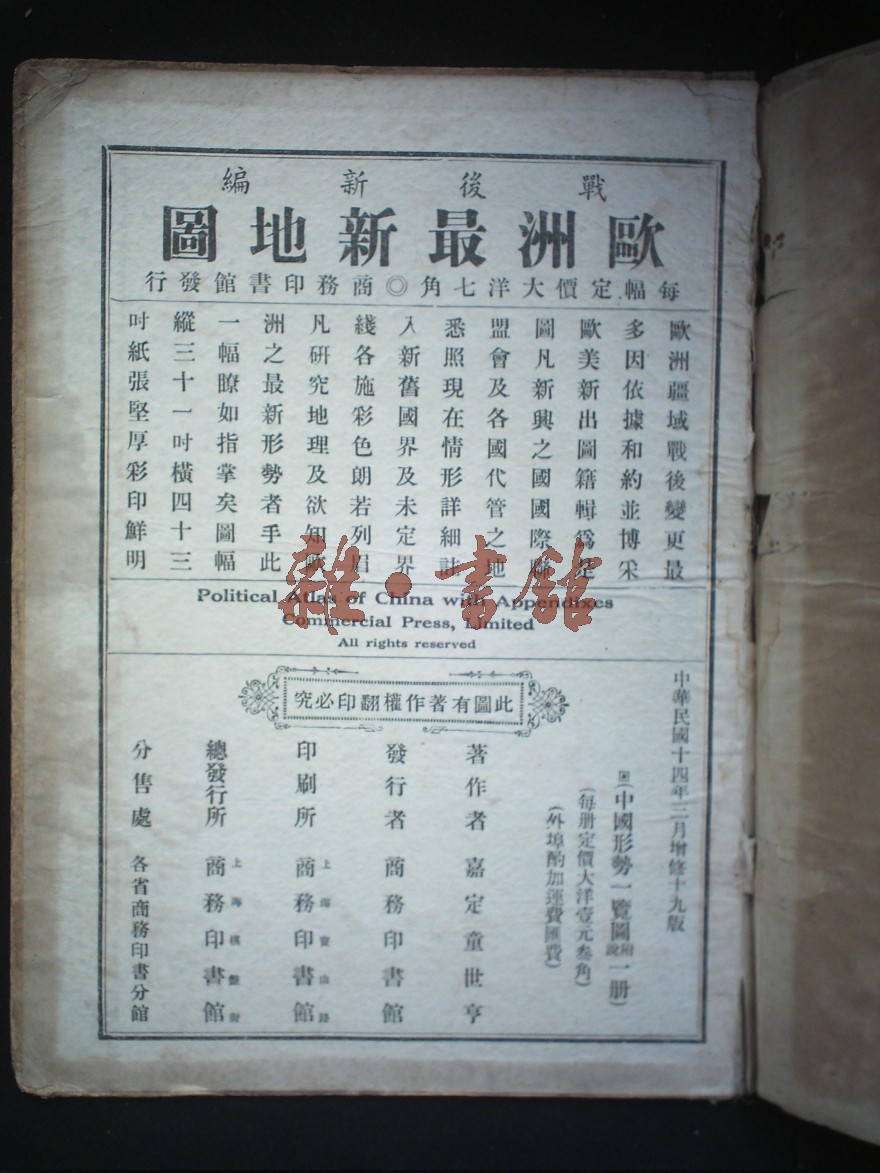 戰後新編
歐洲最新地圖
每幅定價大洋七角◎商務印書館發行
歐洲疆域戰後變更最
多因依據和約並博采
歐美新出圖籍輯爲是
圖凡新興之國國際聯
盟會及各國代管之地
悉照現在情形詳細註
入新舊國界及未定界
綫各施彩色朗若列眉
凡研究地理及欲知歐
洲之最新形勢者手此
一幅瞭如指掌矣圖幅
縱三十一吋橫四十三
吋紙張堅厚彩印鮮明
雜·書館
Political Atlas of China with Appendixes
Commercial Press, Limited
All rights reserved
此圖有著作權翻印必究
中華民國十四年三月增修十九版
(中國形勢一覽圖附說一册)
(每册定價大洋壹元叁角)
(外埠酌加運費匯費)
著作者 嘉定童世亨
發行者 商務印書館
印刷所 上海寶山路 商務印書館
總發行所 上海棋盤街 商務印書館
分售處 各省商務印書分館